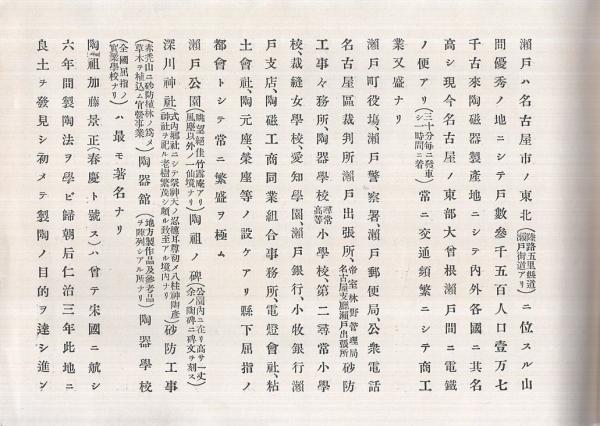 瀨戶ハ名古屋市ノ東北(陸路五里縣道瀨戶街道アリ)ニ位スル山
間優秀ノ地ニシテ戶數參千五百人口壹万七
千古來陶磁器製產地ニシテ內外各國ニ其名
高シ現今名古屋ノ東部大曾根瀨戶間ニ電鐵
ノ便アリ(三十分每ニ發車シ一時間ニ着)常ニ交通頻繁ニシテ商工
業又盛ナリ
瀨戶町役塲、瀨戶警察署、瀨戶郵便局、公衆電話
名古屋區裁判所瀨戶出張所、帝室林野管理局名古屋支廳瀨戶出張所砂防
工事々務所、陶器學校、尋常高等小學校、第二尋常小學
校、裁縫女學校、愛知學園、瀨戶銀行、小牧銀行瀨
戶支店、陶磁工商同業組合事務所、電燈會社、粘
土會社、陶元座、榮座等ノ設ケアリ縣下屈指ノ
都會トシテ常ニ繁盛ヲ極ム
瀨戶公園(眺望絕佳竹露庵アリ風塵以外ノ一仙境ナリ)陶祖ノ碑(公園內ニ在リ高サ一丈余ノ陶碑ニ碑文ヲ刻ス)
深川神社(式內鄕社ニシテ祭神天ノ忍穗耳尊初メ八柱神陶彥神社ヲ祀ル老樹繁茂シ頗ル致至アル境內ナリ)砂防工事
(赤禿山ニ砂防植林ノ爲メ草木ヲ植込ム官營事業)陶器館(地方製作品及參考品ヲ陳列シアル所ナリ)陶器學校
(全國屈指ノ實業學校ナリ)ハ最モ著名ナリ
陶祖加藤景正(春慶ト號ス)ハ曾テ宋國ニ航シ
六年間製陶法ヲ學ビ歸朝后仁治三年此地ニ
良土ヲ發見シ初メテ製陶ノ目的ヲ達シ進ン